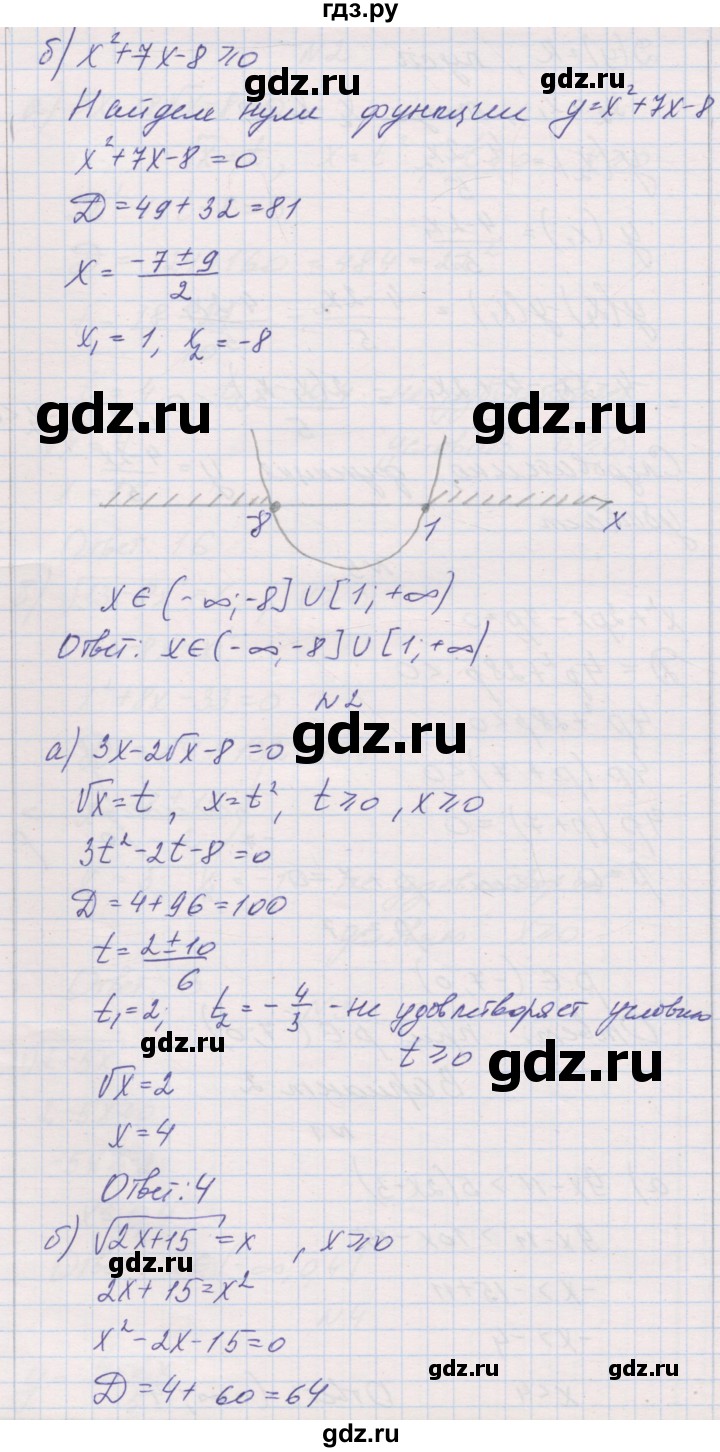 гдз.ру
б) x²+7x-8≥0
gdz.ru
gdz.ru
Найдем нули функции y=x²+7x-8
x²+7x-8=0
gdz.ru
D=49+32=81
x=(-7±9)/2
x₁=1, x₂=-8
gdz.ru
gdz.ru
-8 1 x
x∈(-∞;-8]∪[1;+∞)
Ответ: x∈(-∞;-8]∪[1;+∞)
N2
gdz.ru
а) 3x-2√x-8=0
√x=t, x=t², t≥0, x≥0
3t²-2t-8=0
D=4+96=100
t=(2±10)/6
t₁=2, t₂=-4/3 - не удовлетворяет условию
t≥0
gdz.ru
gdz.ru
√x=2
x=4
Ответ: 4
б) √(2x+15)=x, x≥0
gdz.ru
2x+15=x²
x²-2x-15=0
gdz.ru
gdz.ru
D=4+60=64
gdz.ru